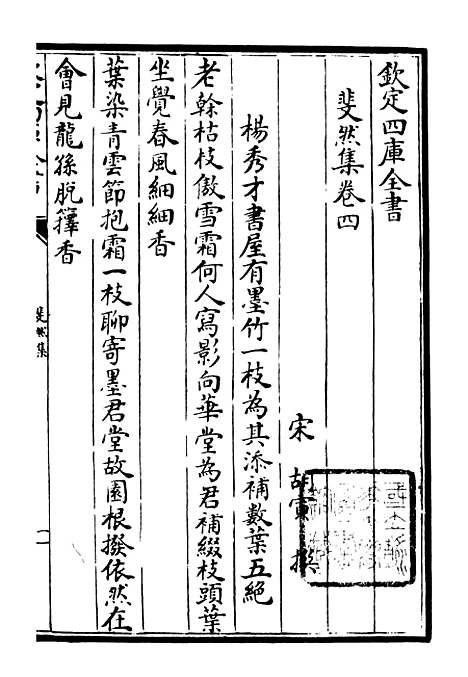 欽定四庫全書
斐然集卷四
宋 胡寅 撰
楊秀才書屋有墨竹一枝為其添補數葉五絕
老榦枯枝傲雪霜何人寫影向華堂為君補綴枝頭葉
坐覺春風細細香
葉染青雲節抱霜一枝聊寄墨君堂故園根撥依然在
會見龍孫脫籜香
斐然集
一